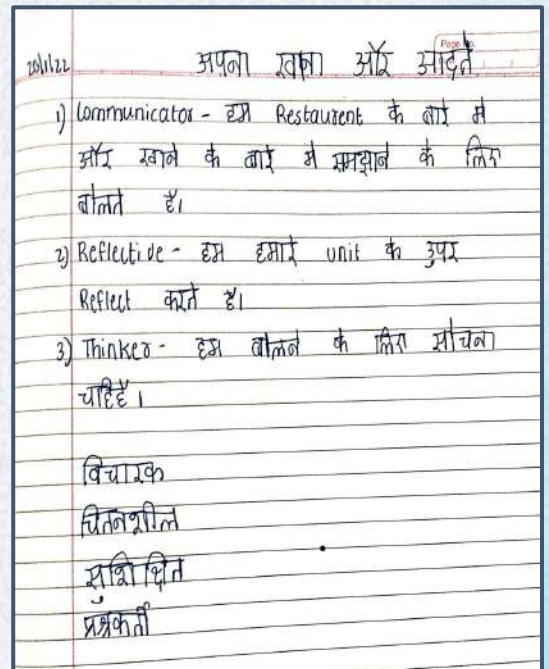 Page No.
20/1/22 अपना खाना और आदते
1) Communicator - हम Restaurent के बारे मे
और खाने के बारे मे समझाने के लिए
बोलते है।
2) Reflective - हम हमारे unit के उपर
Reflect करते है।
3) Thinker - हम बोलने के लिए सोचना
चाहिहै।
विचारक
चितनशील
सुशिक्षित
प्रश्नकर्ता